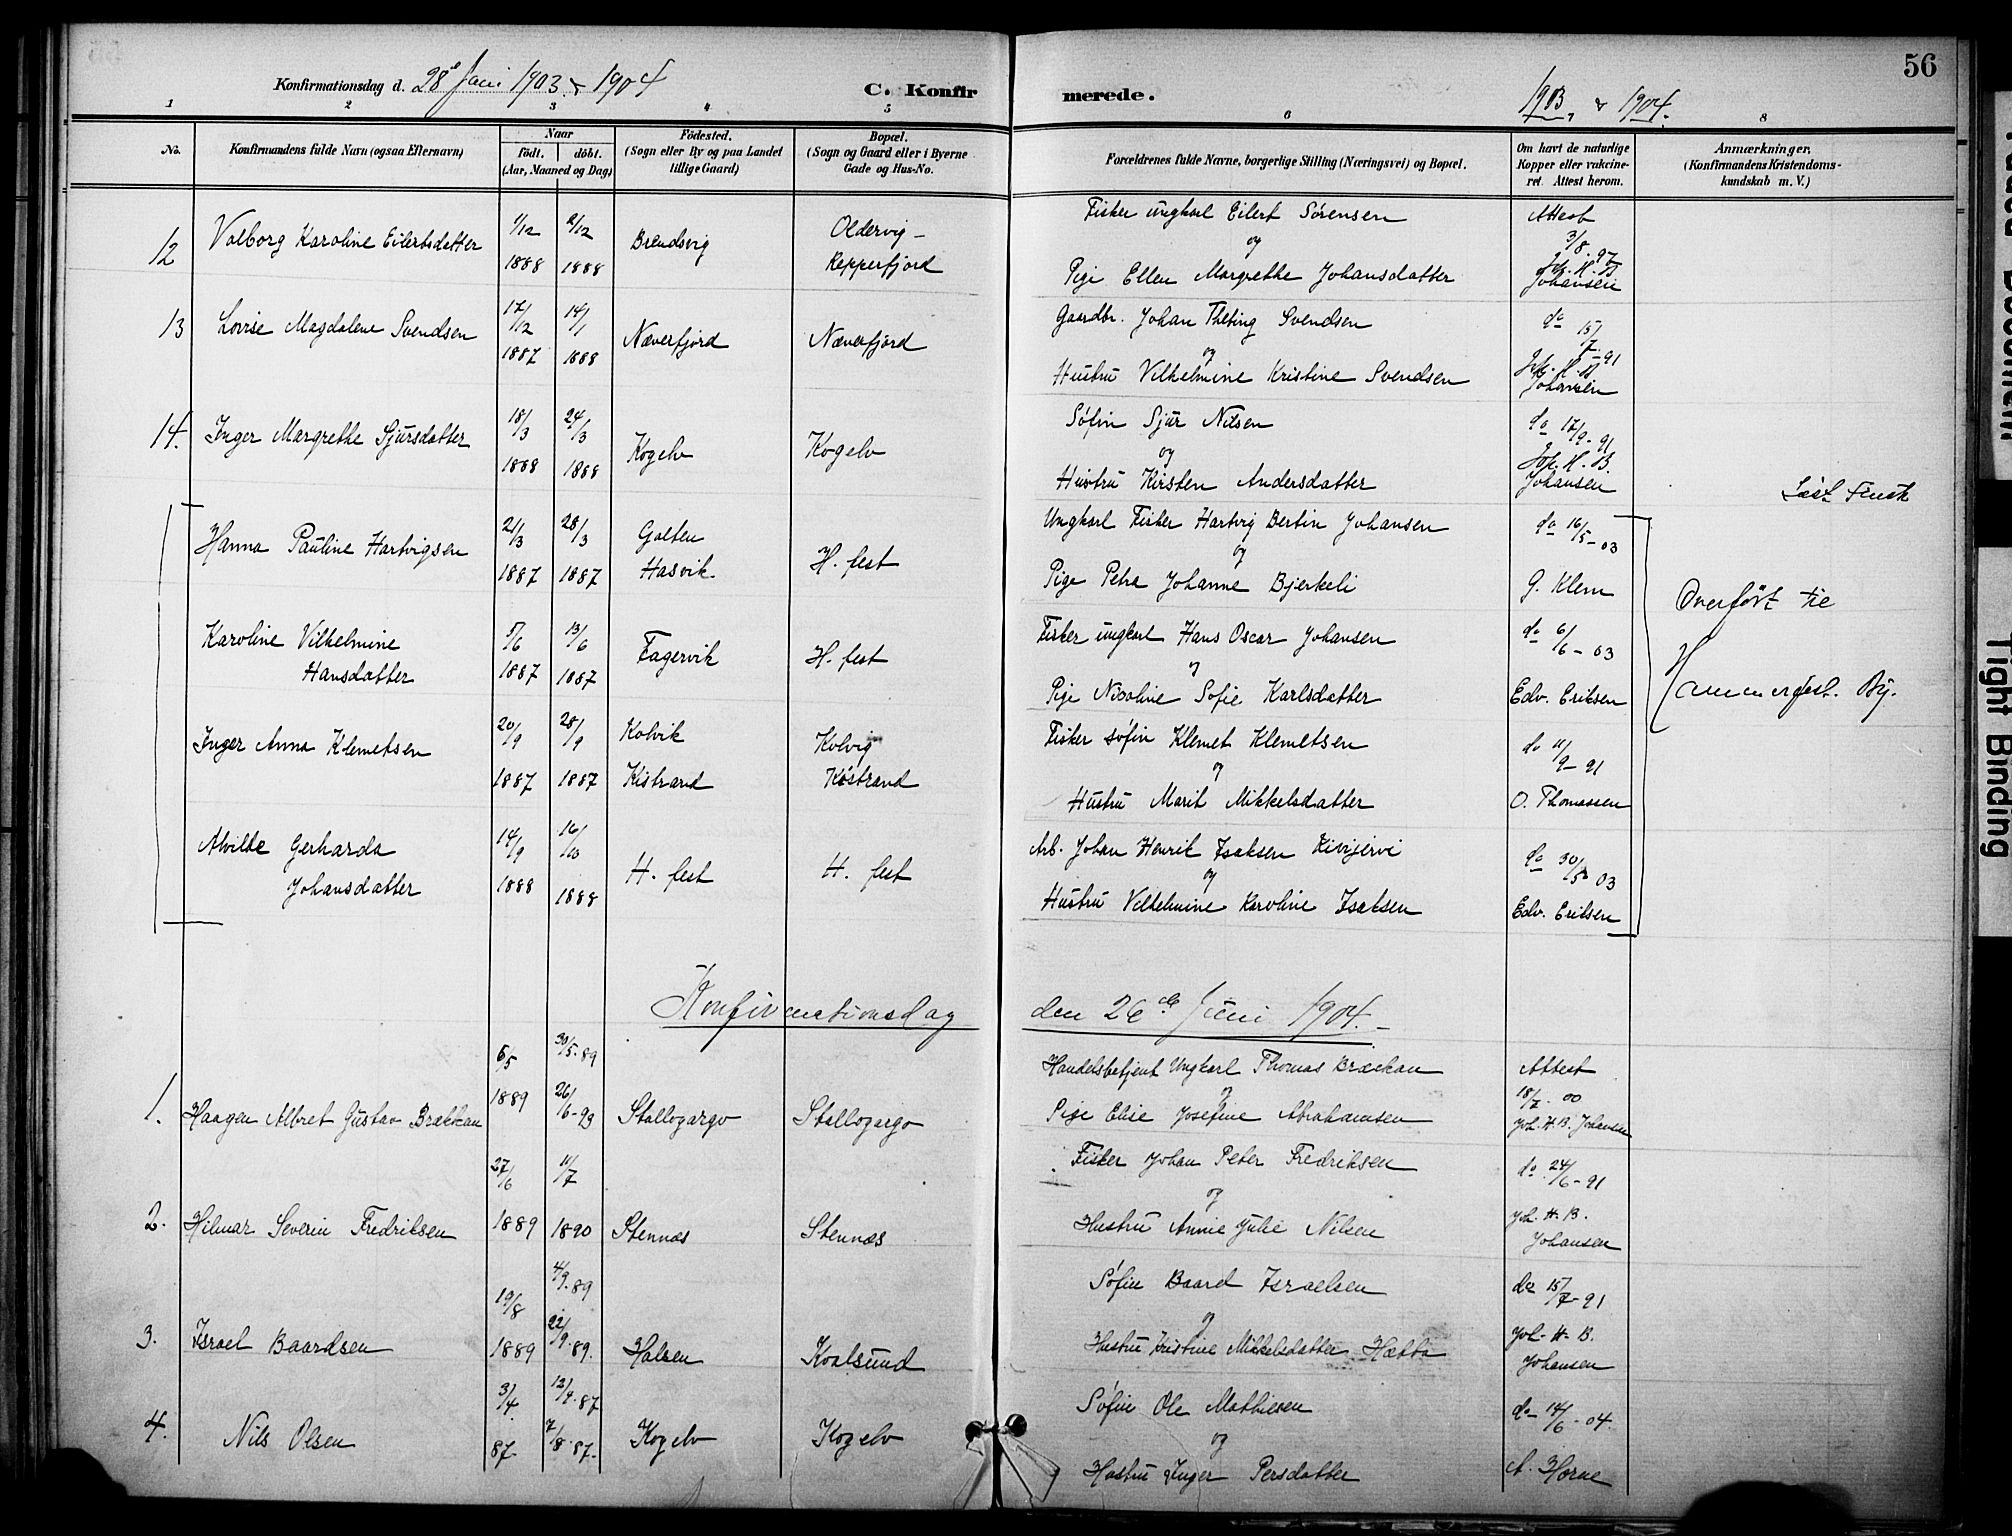 56
Konfirmationsdag d. 28de Juni 1903 & 1904
C. Konfirmerede.
1903, & 1904.
1 2 3 4 5 6 8
No.
Konfirmandens fulde Navn (ogsaa Efternavn)
Naar
födt. döbt.
(Aar, Maaned og Dag)
Födested.
(Sogn eller By og paa Landet
tillige Gaard)
Bopæl.
(Sogn og Gaard eller i Byerne
Gade og Hus-No.
Forældrenes fulde Navne, borgerlige Stilling (Næringsvei) og Bopæl.
Om havt de naturlige
Kopper eller vakcine-
ret. Attest herom.
Anmærkninger.
(Konfirmandens Kristendoms-
kundskab m. V.)
12 Valborg Karoline Eilertsdatter 1/12 1888 2/12 1888 Brendsvig Oldervig - Repperfjord
Fisker ungkarl Eilert Sörensen
og
Pige Ellen Margrethe Johansdatter
Attest 3/8-97 Joh. H. B. Johansen
13 Lovise Magdalene Svendsen 17/12 1887 14/1 1888 Næverfjord Næverfjord
Gaardbr. Johan Theting Svendsen
og
Hustru Vilhelmine Kristine Svendsen
do 15/7-91 Joh. H. B. Johansen
14. Inger Margrethe Sjursdatter 18/3 1888 24/3 1888 Kogelv Kogelv
Söfin Sjur Nilsen
og
Hustru Kirsten Andersdatter
do 17/9-91 Joh. H. B. Johansen
Læst Finsk
Hanna Pauline Hartvigsen 21/3 1887 28/3 1887 Galten Hasvik H. fest
Ungkarl Fisker Hartvig Bertin Johansen
og
Pige Petra Johanne Bjerkeli
do 16/5-03 G. Klem
Overfört til
Hammerfest By.
Karoline Vilhelmine
Hansdatter 5/6 1887 13/6 1887 Fagervik H. fest
Fisker ungkarl Hans Oscar Johansen
og
Pige Nicoline Sofie Karlsdatter
do 6/6-03 Edv. Eriksen
Inger Anna Klemetsen 20/9 1887 28/9 1887 Kolvik Kistrand Kolvig Kistrand
Fisker söfin Klemet Klemetsen
og
Hustru Marit Mikkelsdatter
do 11/9-91 O. Thomassen
Alvilde Gerharda
Johansdatter 14/9 1888 16/10 1888 H. fest H. fest
Arb. Johan Henrik Isaksen Kivijervi
og
Hustru Vilhelmine Karoline Isaksen
do 30/5 03 Edv. Eriksen
Konfirmationsdag den 26de Juni 1904.
1. Haagen Albret Gustav Brækkan 6/5 1889 30/5-89 26/6-93 Stallogargo Stallogargo
Handelsbetjent Ungkarl Thomas Brækan
og
Pige Elise Josefine Abrahamsen
Attest 18/7-00 Joh. H. B. Johansen
2. Hilmar Severin Fredriksen 27/6 1889 11/7 1890 Stennæs Stennæs
Fisker Johan Peter Fredriksen
og
Hustru Annie Julie Nilsen
do 24/6-91 Joh. H. B. Johansen
3. Israel Baardsen 19/8 1889 4/9-89 22/9-89. Halsen Kvalsund
Söfin Baard Israelsen
og
Hustru Kristine Mikkelsdatter Hætta
do 15/7-91 Joh. H. B. Johansen
4. Nils Olsen 3/4. 87 13/4-87 7/8-87. Kogelv Kogelv
Söfin Ole Mathisen
og
Hustru Inger Persdatter
do 14/6-04 A. Horne
Tight Binding